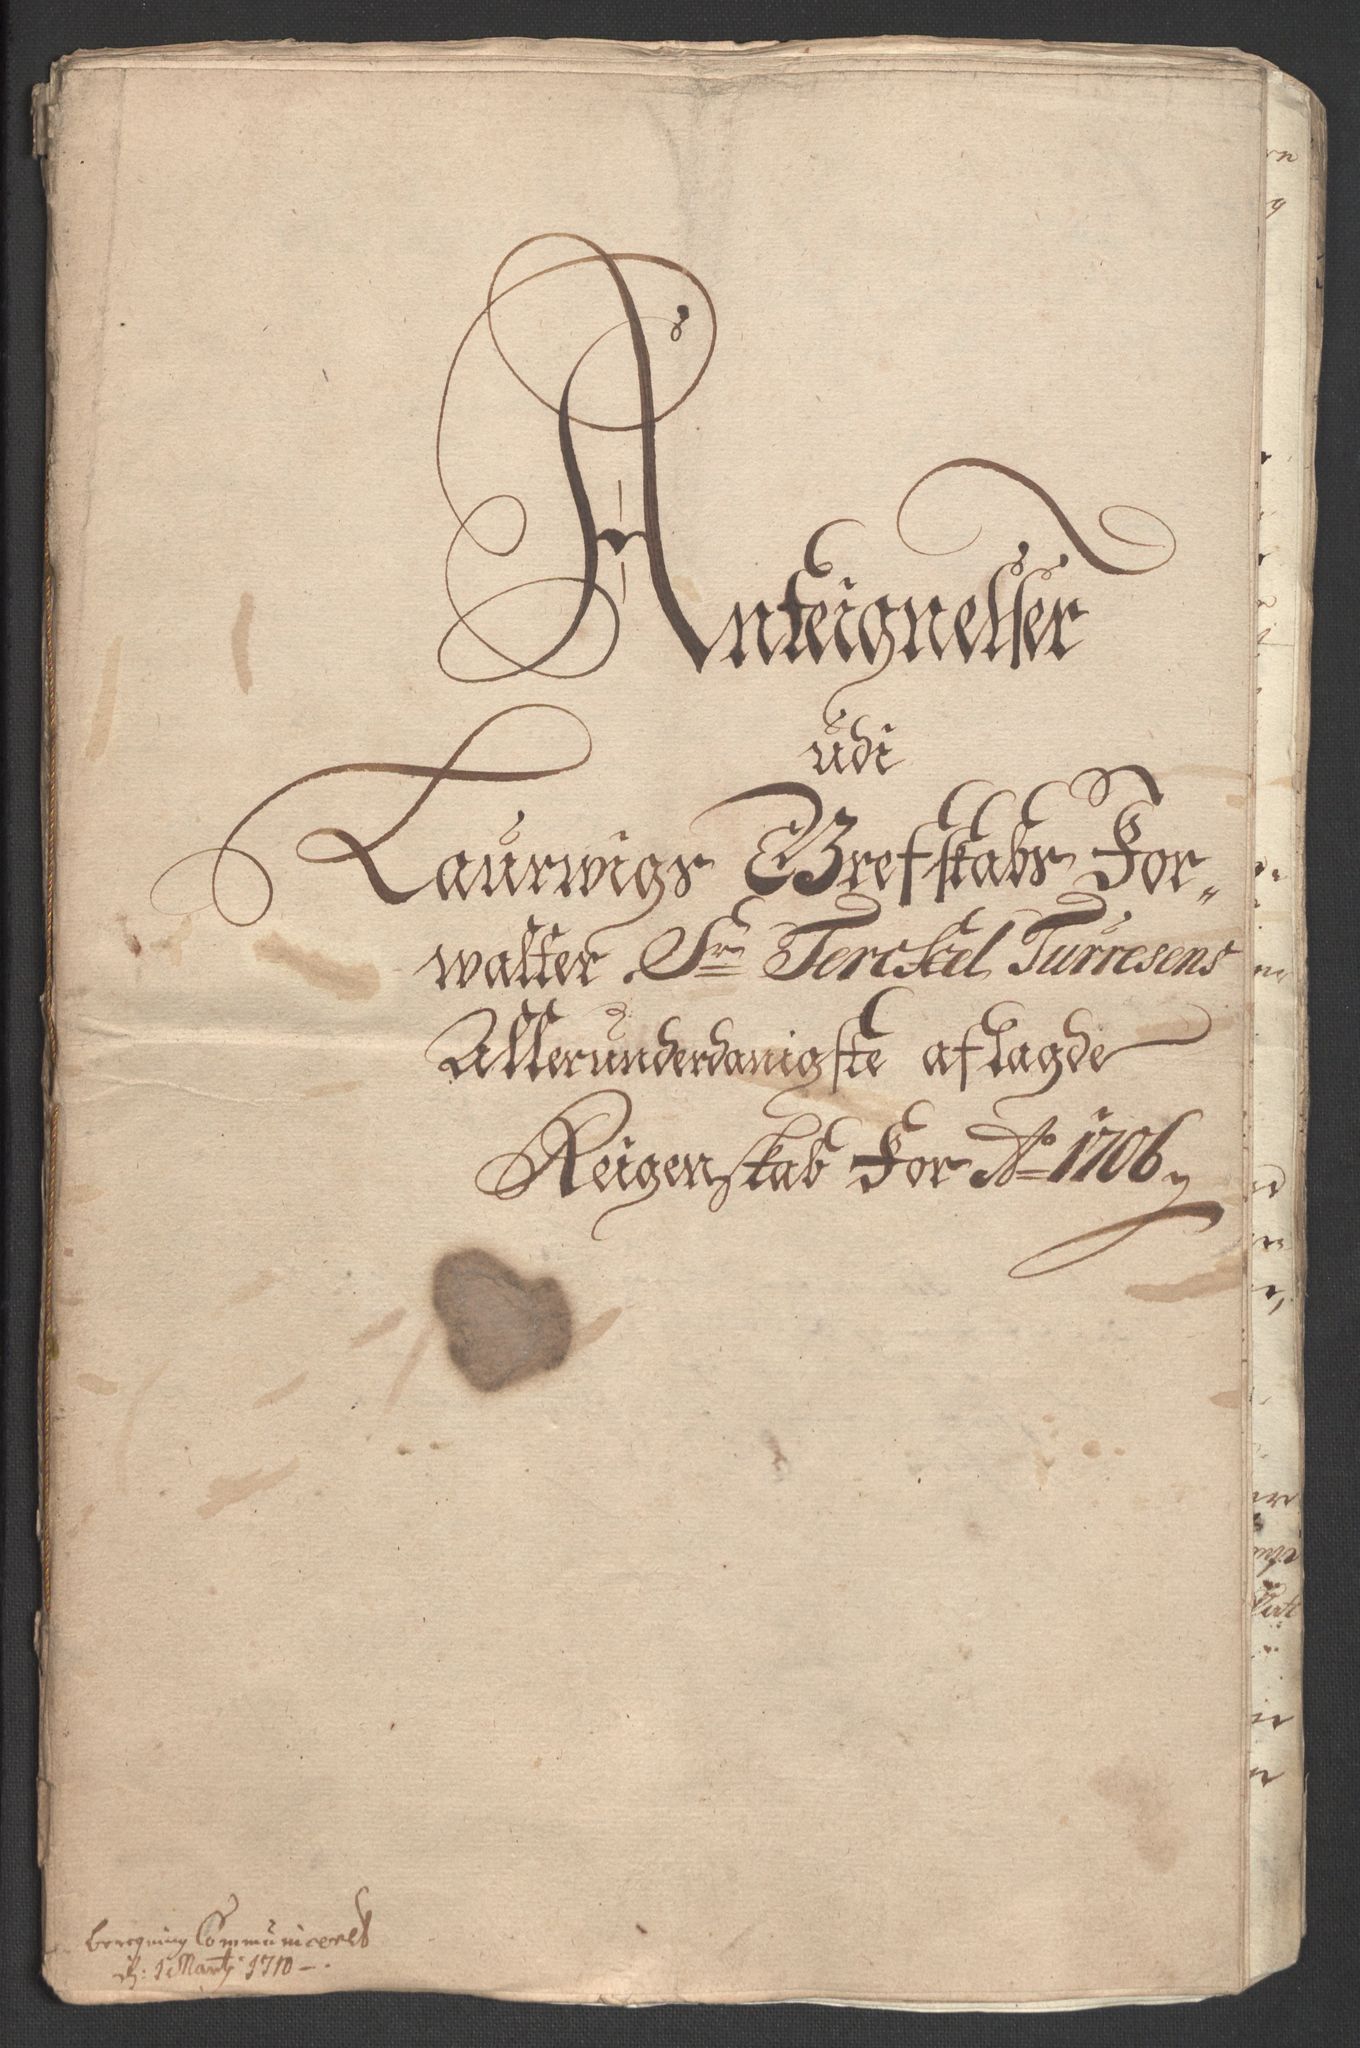 Anteignelser
udi
Laurwigs Grefskabs For-
walter Sr Terckel Turresens
Allerunderdanigste aflagde
Reigenskab for Ao 1706
beregning Communiceret
d: 1 Martj 1710